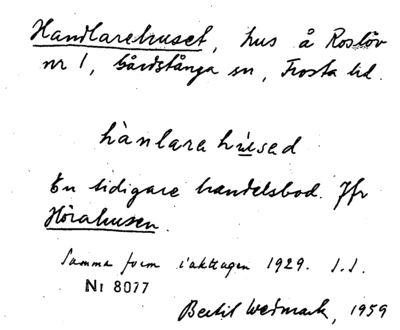 Handlarehuset, hus å Roslöv
nr 1, Gårdstånga sn, Frosta hd.
hànlarahu̇sad
En tidigare handelsbod. Jfr
Hörahusen.
Samma form i aktlagen 1929. S.S.
Nr 8077
Bertil Wedmark, 1959